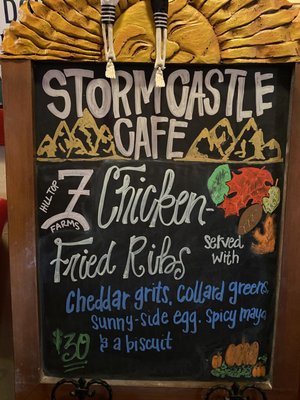 STORMCASTLE
CAFE
HILL TOP
7
FARMS
Chicken-
Fried Ribs
Served
with
Cheddar grits, collard greens,
sunny-side egg, spicy mayo
$30
& a biscuit